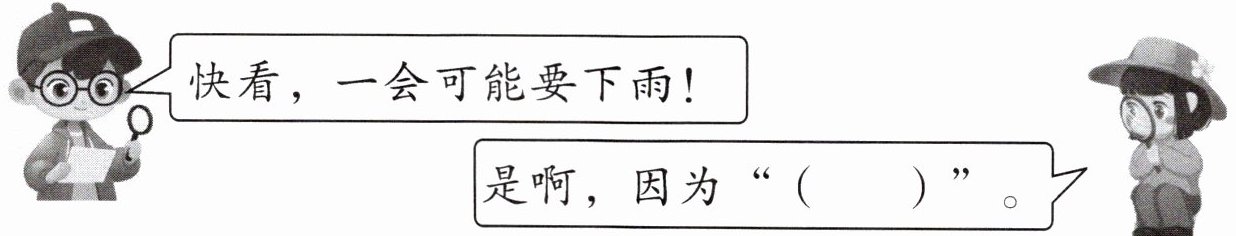 快看，一会可能要下雨！
是啊，因为“（　　）”。